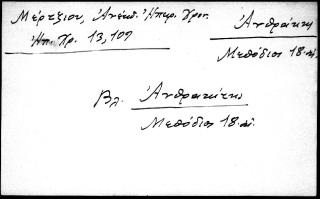 Μέρτζιου, Ἀνέκδ. Ἠπειρ. Χρον.
Ἠπ. Χρ. 13, 109
Ἀνθρακίτης
Μεθόδιος 18. αἰ.
Βλ. Ἀνθρακίτης
Μεθόδιος 18. αἰ.